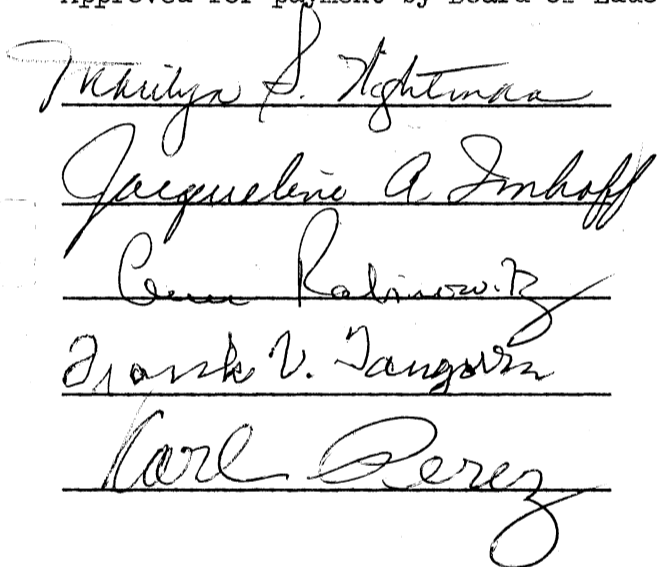 Approved for payment by Board of Educ
Marilyn S. Nightman
Jacqueline A Imhoff
Rabinowitz
Frank V. Tangorra
Karl Perez